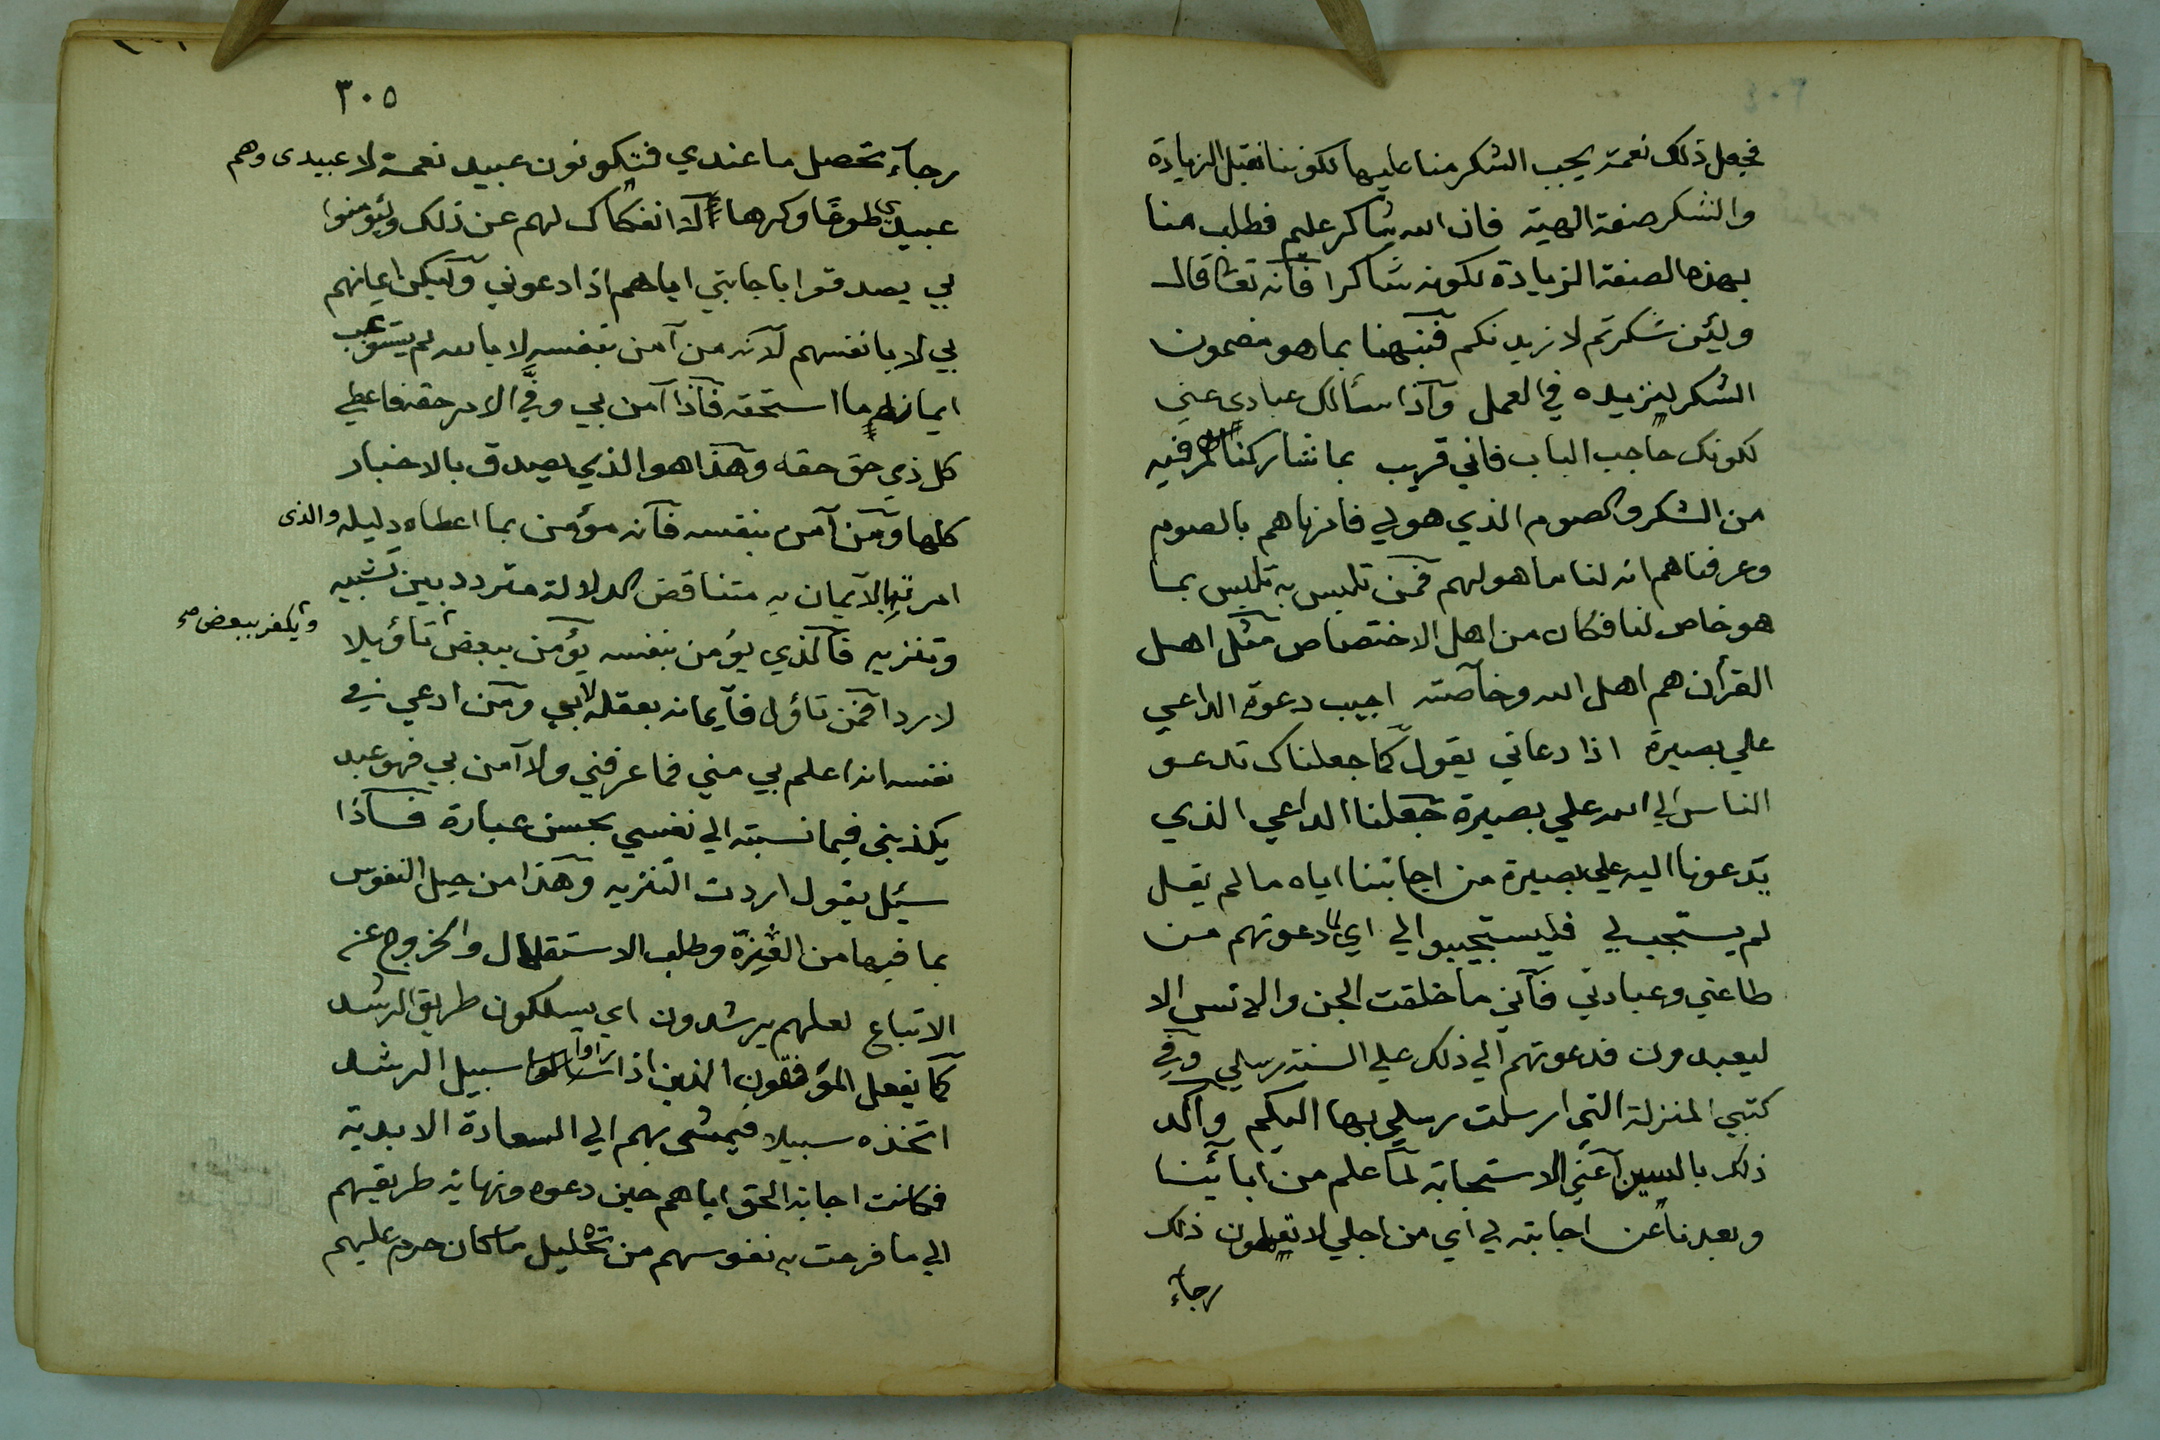 فجعل ذلك نعمة يجب الشكر منا عليها لكوننا نقبل الزيادة
والشكر صفة الهية فان الله شاكر عليم فطلب منا
بهذه الصفة الزيادة لكونه شاكرا فانه تعالى قال
ولئن شكرتم لازيدنكم فنبهنا بما هو مضمون
الشكر لنزيده في العمل واذا سألك عبادي عني
لكونك حاجب الباب فاني قريب بما شاركناهم فيه
من الشكر والصوم الذي هو لي فامرناهم بالصوم
وعرفناهم انه لنا ما هو لهم فمن تلبس به تلبس بما
هو خاص لنا فكان من اهل الاختصاص مثل اهل
القرآن هم اهل الله وخاصته اجيب دعوة الداعي
علي بصيرة اذا دعاني يقول كما جعلناك تدعو
الناس الي الله علي بصيرة جعلنا الداعي الذي
يدعونا اليه علي بصيرة من اجابتنا اياه ما لم يقل
لم يستجب لي فليستجيبوا لي اي لما دعوتهم من
طاعتي وعبادتي فاني ما خلقت الجن والانس الا
ليعبدون فدعوتهم الي ذلك علي السنة رسلي وفي
كتبي المنزلة التي ارسلت رسلي بها اليكم واكد
ذلك بالسين اعني الاستجابة لما علم من ابائنا
وبعدنا عن اجابته لي اي من اجلي لا تعملون ذلك
رجآء
٣٠٥
رجآء تحصل ما عندي فتكونون عبيد نعمة لا عبيدي وهم
عبيدي طوعا وكرها لا انفكاك لهم عن ذلك وليؤمنوا
بي يصدقوا باجابتي اياهم اذا دعوني وليكن ايمانهم
بي لا بانفسهم لانه من آمن بنفسه لا بالله لم يستوعب
ايمانه ما استحقه فاذا آمن بي وفي الامر حقه فاعطي
كل ذي حق حقه وهذا هو الذي يصدق بالاخبار
كلها ومن آمن بنفسه فانه مؤمن بما اعطاه دليله والذي
امرته بالايمان به متناقض الدلالة متردد بين تشبيه
وتنزيه فالذي يؤمن بنفسه يؤمن ببعض تاؤيلا
ويكفر ببعض صح
لا ردا فمن تاؤل فايمانه بعقله لا بي ومن ادعي في
نفسه انه اعلم بي مني فما عرفني ولا آمن بي فهو عبد
يكذبني فيما نسبته الي نفسي بحسن عبارة فاذا
سئل يقول اردت التنزيه وهذا من حيل النفوس
بما فيها من العزة وطلب الاستقلال والخروج عن
الاتباع لعلهم يرشدون اي يسلكون طريق الرشد
كما يفعل الموفقون الذين اذا راوا سبيل الرشد
اتخذه سبيلا فيمشي بهم الي السعادة الابدية
فكانت اجابة الحق اياهم حين دعوه ونهاية طريقهم
الي ما فرحت به نفوسهم من تحليل ما كان حرم عليهم